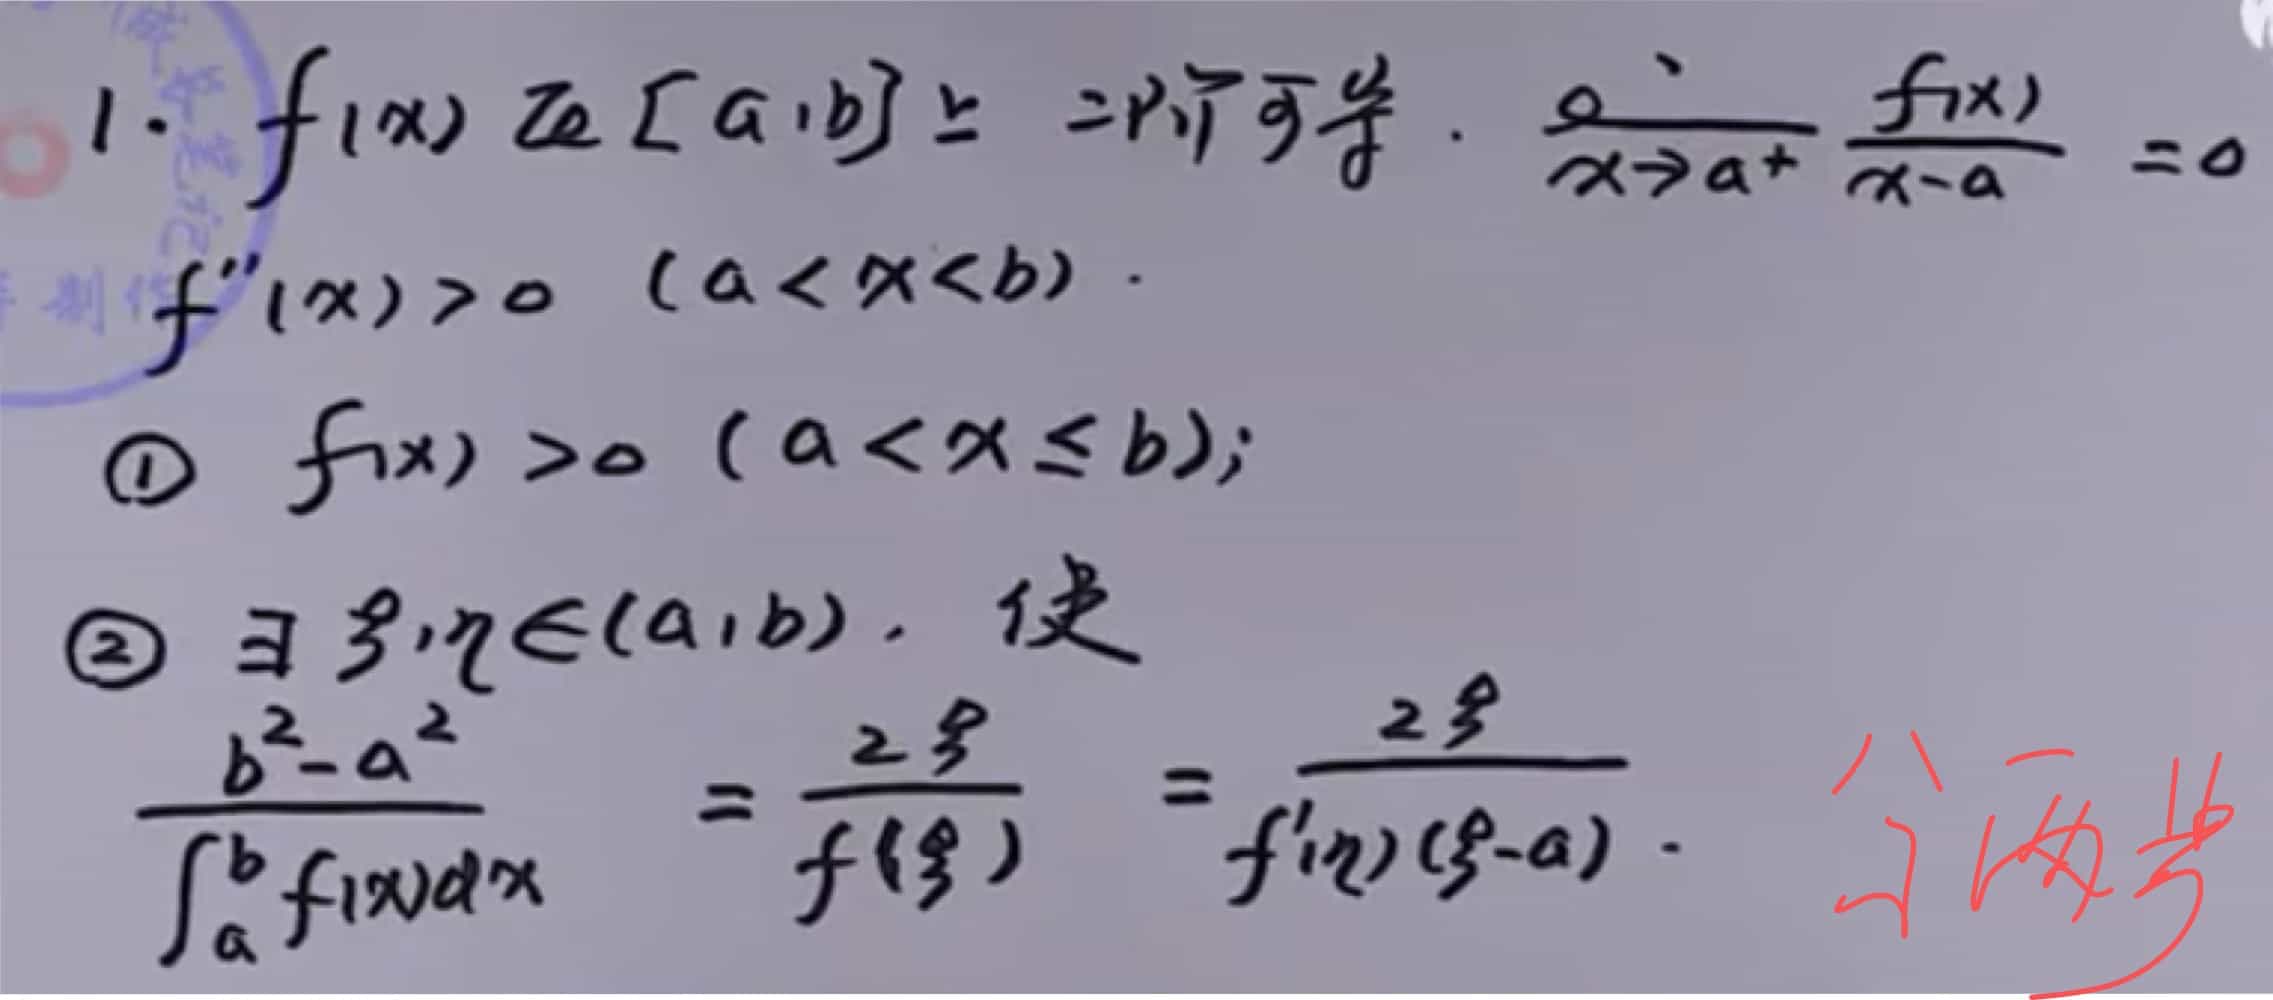 1. f(x) 在 [a,b] 上 二阶可导. lim x→a+ f(x)/(x-a) = 0
f''(x) > 0 (a < x < b).
① f(x) > 0 (a < x ≤ b);
② ∃ ξ,η∈(a,b). 使
(b²-a²)/∫ₐᵇ f(x)dx = 2ξ/f(ξ) = 2ξ/(f'(η)(ξ-a)).
分两步